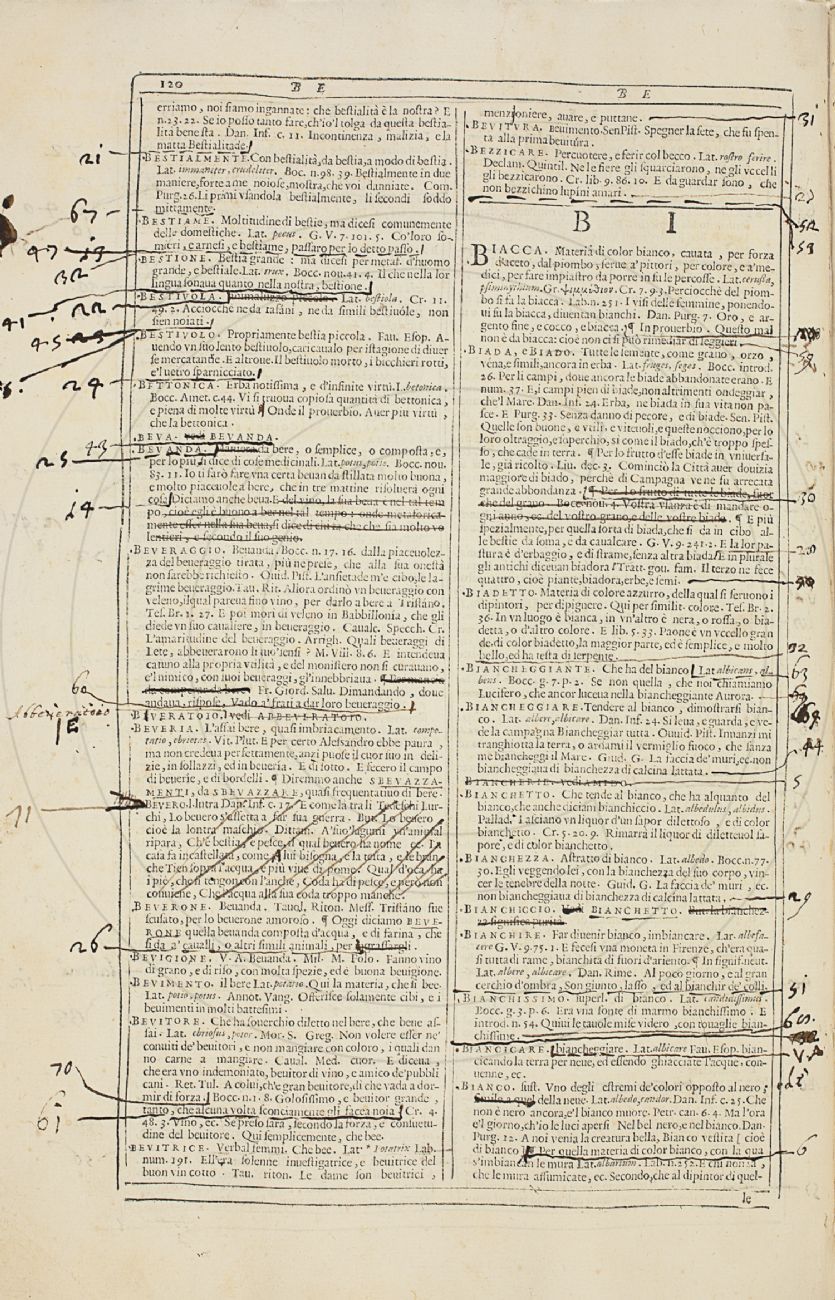 120 B E
erriamo, noi siamo ingannate: che bestialità è la nostra? E
n. 23. 22. Se io posso tanto fare, ch'io'l tolga da questa bestia-
lità bene sta. Dan. Inf. c. 11. Incontinenza, malizia, e la
matta Bestialitade.
BESTIALMENTE. Con bestialità, da bestia, a modo di bestia.
Lat. immaniter, crudeliter. Boc. n. 98. 39. Bestialmente in due
maniere, forte a me noiose, mostra, che voi danniate. Com.
Purg. 26. Li primi vsandola bestialmente, li secondi soddo
mittamente.
BESTIAME. Moltitudine di bestie, ma dicesi comunemente
delle domestiche. Lat. pecus. G. V. 7. 101. 5. Co' loro so-
mieri, carnesi, e bestiame, passaro per lo detto passo.
BESTIONE. Bestia grande: ma dicesi per metaf. d'huomo
grande, e bestiale. Lat. trux. Bocc. nou. 41. 4. Il che nella lor
lingua sonaua quanto nella nostra, bestione.
BESTIVOLA. Animaluzzo piccolo. Lat. bestiola. Cr. 11.
49. 2. Acciocche ne da tafani, ne da simili bestiuole, non
sien noiati.
BESTIVOLO. Propriamente bestia piccola. Fau. Esop. A-
uendo vn suo lento bestiuolo, caricaualo per istagione di diuer
se mercatantie. E altroue. Il bestiuolo morto, i bicchieri rotti,
e'l uetro sparnicciato.
BETTONICA. Erba notissima, e d'infinite virtù. L. betonica.
Bocc. Amet. c. 44. Vi si truoua copiosa quantità di bettonica,
e piena di molte virtù ¶ Onde il prouerbio. Auer più virtù,
che la bettonica.
BEVA. vedi BEVANDA.
BEVANDA. da bere, o semplice, o composta, e,
per lo più si dice di cose medicinali. Lat. potus, potio. Bocc. nou.
83. 11. Io ti farò fare vna certa beuanda stillata molto buona,
e molto piaceuole a bere, che in tre mattine risoluerà ogni
cosa Diciamo anche beua. E del vino, la sua beua è nel tal tem
po, cioè egli è buono a ber nel tal tempo: onde metaforica-
mente esser nella sua beua, si dice di chi fa che che sia molto vo
lentieri, e secondo il suo genio.
BEVERAGGIO. Beuanda. Bocc. n. 17. 16. dalla piaceuolez-
za del beueraggio tirata, più ne prese, che alla sua onestà
non sarebbe richiesto. Ouid. Pist. L'ansietade m'è cibo, le la-
grime beueraggio. Fau. Rit. Allora ordinò vn beueraggio con
veleno, il qual pareua fino vino, per darlo a bere a Tristano.
Tes. Br. 1. 27. E poi morì di veleno in Babbillonia, che gli
diede vn suo caualiere, in beueraggio. Caualc. Specch. Cr.
L'amaritudine del beueraggio. Arrigh. Quali beueraggi di
Lete, abbeuerarono li tuo' sensi? M. Vill. 8. 6. E intendeua
catuno alla propria vtilità, e del monistero non si curauano,
e'l nimico, con suoi beueraggi, gl'innebbriaua.
Fr. Giord. Salu. Dimandando, doue
andaua, rispose, Vado a' frati a dar loro beueraggio.
BEVERATOIO. vedi ABBEVERATOIO.
BEVERIA. L'assai bere, quasi imbriacamento. Lat. compo-
tatio, ebrietas. Vit. Plut. E per certo Alessandro ebbe paura,
ma non credeua perfettamente, anzi puose il cuor suo in deli-
zie, in sollazzi, ed in beueria. E di sotto. E fecero il campo
di beuerie, e di bordelli. ¶ Diremmo anche SBEVAZZA-
MENTI, da SBEVAZZARE, quasi frequentatiuo di bere.
BEVERO. Dan. Inf. c. 17. E come là tra li Tedeschi Lur-
chi, Lo beuero s'assetta a far sua guerra. But. Lo beuero,
cioè la lontra maschio. Dittam. A' suo' lagumi vn animal
ripara, Ch'è bestia, e pesce, il qual beuero ha nome
Coda ha di pesce, e però non
conuiene, Che l'acqua alla sua coda troppo manche.
BEVERONE. Beuanda. Tauol. Riton. Mess. Tristano sue
scusato, per lo beuerone amoroso. ¶ Oggi diciamo BEVE-
RONE quella beuanda composta d'acqua, e di farina, che
si da a' caualli, o altri simili animali, per ingrassargli.
BEVIGIONE. V. A. Beuanda. Mil. M. Polo. Fanno vino
di grano, e di riso, con molta spezie, ed è buona beuigione.
BEVIMENTO. il bere Lat. potatio. Qui la materia, che si bee.
Lat. potio, potus. Annot. Vang. Offerisce solamente cibi, e i
beuimenti in molti battesimi.
BEVITORE. Che ha souerchio diletto nel bere, che bene as-
sai. Lat. ebriosus, potor. Mor. S. Greg. Non volere esser ne'
conuiti de' beuitori, e non mangiare con coloro, i quali dan
no carne a mangiare. Caual. Med. cuor. E diceua,
che era vno indemoniato, beuitor di vino, e amico de' pubbli
cani. Ret. Tul. A colui, ch'è gran beuitore, di che vada a dor-
mir di forza. Bocc. n. 1. 8. Golosissimo, e beuitor grande,
tanto, che alcuna volta sconciamente gli facea noia. Cr. 4.
48. 3. Vino, ec. Se preso sarà, secondo la forza, e consuetu-
dine del beuitore. Qui semplicemente, che bee.
BEVITRICE. Verbal femm. Che bee. Lat. * potatrix Lab.
num. 191. Ell'era solenne inuestigatrice, e beuitrice del
buon vin cotto. Tau. riton. Le dame son beuitrici,
B E
menzioniere, auare, e puttane.
BEVITURA. Beuimento. Sen Pist. Spegner la sete, che fu spen-
ta alla prima beuitura.
BEZZICARE. Percuotere, e ferir col becco. Lat. rostro ferire.
Declam. Quintil. Ne le fiere gli squarciarono, ne gli vccelli
gli bezzicarono. Cr. lib. 9. 86. 10. E da guardar sono, che
non bezzichino lupini amari.
B I
BIACCA. Materia di color bianco, cauata, per forza
d'aceto, dal piombo, serue a' pittori, per colore, e a' me-
dici, per fare impiastro da porre in su le percosse. Lat. cerussa,
psimmythium. Gr. ψιμμύθιον. Cr. 7. 93. Perciocchè del piom-
bo si fa la biacca. Lab. n. 251. I visi delle femmine, ponendo-
ui su la biacca, diuentan bianchi. Dan. Purg. 7. Oro, e ar-
gento fine, e cocco, e biacca. ¶ In prouerbio. Questo mal
non è da biacca: cioè non ci si può rimediar di leggieri.
BIADA, e BIADO. Tutte le semente, come grano, orzo,
vena, e simili, ancora in erba. Lat. fruges, seges. Bocc. introd.
26. Per li campi, doue ancora le biade abbandonate erano. E
num. 37. E, i campi pien di biade, non altrimenti ondeggiar,
che'l Mare. Dan. Inf. 24. Erba, ne biada in sua vita non pa-
sce. E Purg. 33. Senza danno di pecore, e di biade. Sen. Pist.
Quelle son buone, e vtili. e viteuoli, e queste nocciono, per lo
loro oltraggio, e superchio, si come il biado, ch'è troppo spes-
so, che cade in terra. ¶ Per lo frutto d'esse biade in vniuersa-
le, già ricolto. Liu. dec. 3. Cominciò la Città auer douizia
maggiore di biado, perchè di Campagna ve ne fu arrecata
grande abbondanza. ¶ Per lo frutto di tutte le biade, fuor
che del grano. Bocc. nou. 4. Vostra vsanza è di mandare o-
gni anno, ec. del vostro grano, e delle vostre biade. ¶ E più
spezialmente, per quella sorta di biada, che si da in cibo al-
le bestie da soma, e da caualcare. G. V. 9. 241. 2. E la lor pa-
stura è d'erbaggio, e di strame, senza altra biada. E in plurale
gli antichi diceuan biadora. Tratt. gou. fam. Il terzo ne fece
quattro, cioè piante, biadora, erbe, e semi.
BIADETTO. Materia di colore azzurro, della qual si seruono i
dipintori, per dipignere. Qui per similit. colore. Tes. Br. 2.
36. In vn luogo è bianca, in vn' altro è nera, o rossa, o bia-
detta, o d'altro colore. E lib. 5. 33. Paone è vn vccello gran
de. di color biadetto, la maggior parte, ed è semplice, e molto
bello, ed ha testa di serpente.
BIANCHEGGIANTE. Che ha del bianco Lat. albicans, al
bens. Bocc. g. 7. p. 2. Se non quella, che noi chiamiamo
Lucifero, che ancor luceua nella biancheggiante Aurora.
BIANCHEGGIARE. Tendere al bianco, dimostrarsi bian-
co. Lat. albere, albicare. Dan. Inf. 24. Si leua, e guarda, e ve-
de la campagna Biancheggiar tutta. Ouuid. Pist. Innanzi mi
tranghiotta la terra, o ardami il vermiglio fuoco, che sanza
me biancheggi il Mare. Giud. G. La faccia de' muri, ec. non
biancheggiaua di bianchezza di calcina lattata.
BIANCHERIE vedi AMIDO.
BIANCHETTO. Che tende al bianco, che ha alquanto del
bianco, che anche diciam bianchiccio. Lat. albedulus, albidus.
Pallad. I asciano vn liquor d'un sapor dilettoso, e di color
bianchetto. Cr. 5. 20. 9. Rimarrà il liquor di dilettevol sa-
pore, e di color bianchetto.
BIANCHEZZA. Astratto di bianco. Lat. albedo. Bocc. n. 77.
30. Egli veggendo lei, con la bianchezza del suo corpo, vin-
cer le tenebre della notte. Guid. G. La faccia de' muri, ec.
non biancheggiaua di bianchezza di calcina lattata.
BIANCHICCIO. Vedi BIANCHETTO.
BIANCHIRE. Far diuenir bianco, imbiancare. Lat. albefa-
cere G. V. 9. 75. 1. E fecesi vna moneta in Firenze, ch'era qua-
si tutta di rame, bianchita di fuori d'ariento. ¶ In signif. neut.
Lat. albere, albicare. Dan. Rime. Al poco giorno, e al gran
cerchio d'ombra, Son giunto, lasso, ed al bianchir de' colli.
BIANCHISSIMO. superl. di bianco. Lat. candidissimus.
Bocc. g. 3. p. 6. Era vna fonte di marmo bianchissimo. E
introd. n. 54. Quiui le tauole mise videro, con touaglie bian-
chissime.
BIANCICARE. biancheggiare. Lat. albicare Fau. Esop. bian-
cicando la terra per neue, ed essendo ghiacciate l'acque: con-
uenne, ec.
BIANCO. sust. Vno degli estremi de' colori opposto al nero;
Simile a quel della neue. Lat. albedo, candor. Dan. Inf. c. 25. Che
non è nero ancora, e'l bianco muore. Petr. can. 6. 4. Ma l'ora
e'l giorno, ch'io le luci apersi Nel bel nero, e nel bianco. Dan.
Purg. 12. A noi venia la creatura bella, Bianco vestita [ cioè
di bianco ] ¶ Per quella materia di color bianco, con la qua
s'imbiancan le mura Lat. albarium. Lab. n. 252. E chi non sa,
che le mura affumicate, ec. Secondo, che al dipintor di quel-
le
21
67
47
32
41
22
45
24
43
25
14
60
Abbeueratoio
11
26
70
61
31
23
52
53
30
28
92
63
44
5
29
51
60
V.A.
6